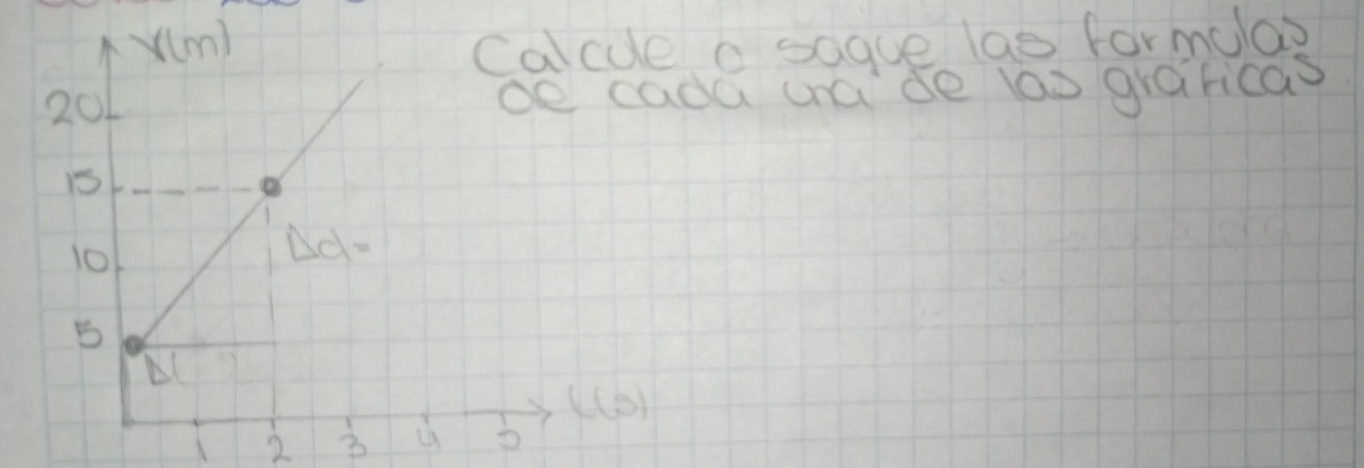 x(m)
Calcule o saque las formulas
de cada una de las gráficas
20
15
Δd=
10
5
Δt
t(s)
1 2 3 4 5